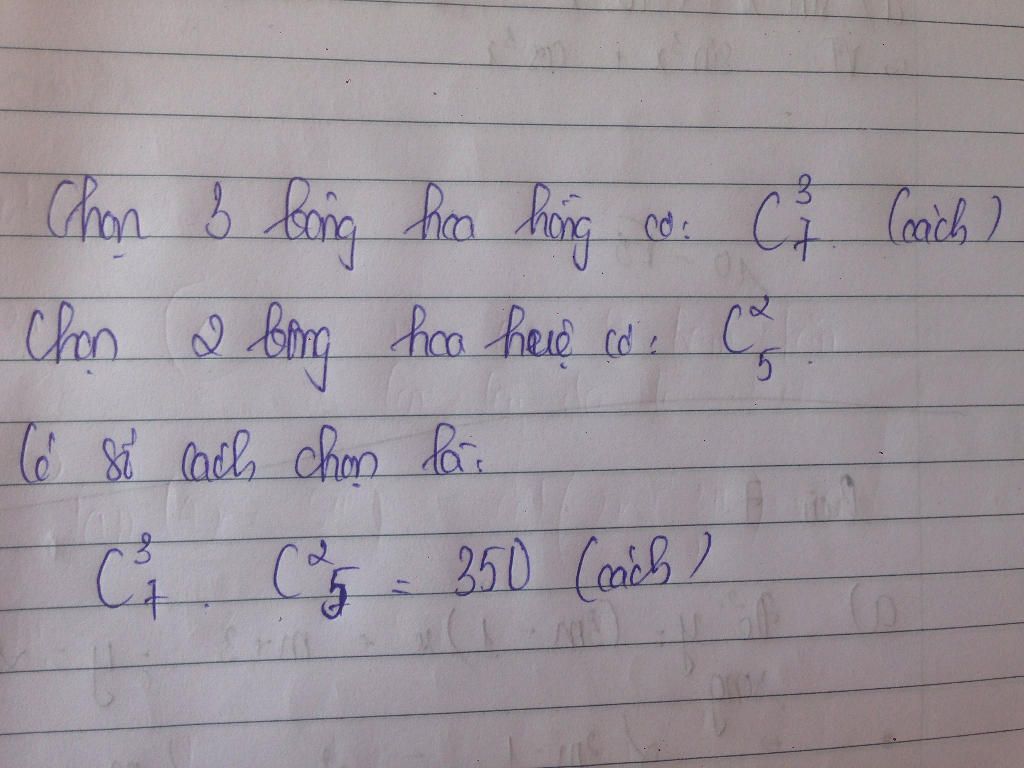 Chọn 3 bông hoa hồng có: C³₇ (cách)
Chọn 2 bông hoa huệ có: C²₅.
Có số cách chọn là:
C³₇ . C²₅ = 350 (cách)